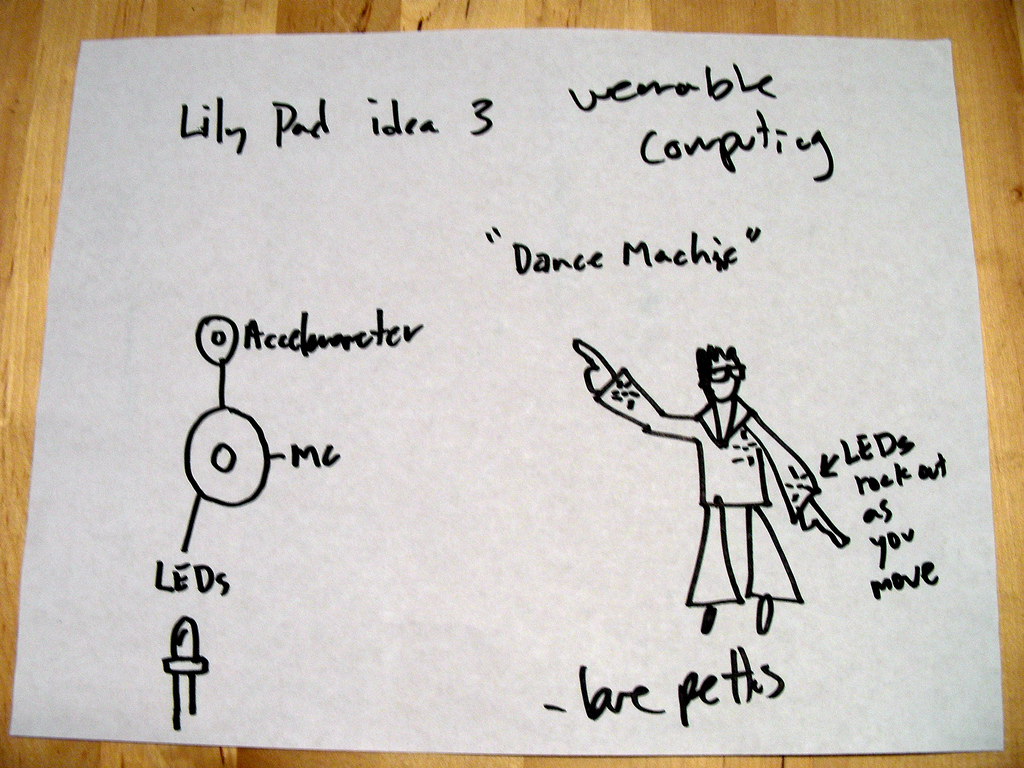 Lily Pad idea 3
wearable
computing
"Dance Machine"
Accelerometer
MC
LEDs
LEDs
rock out
as
you
move